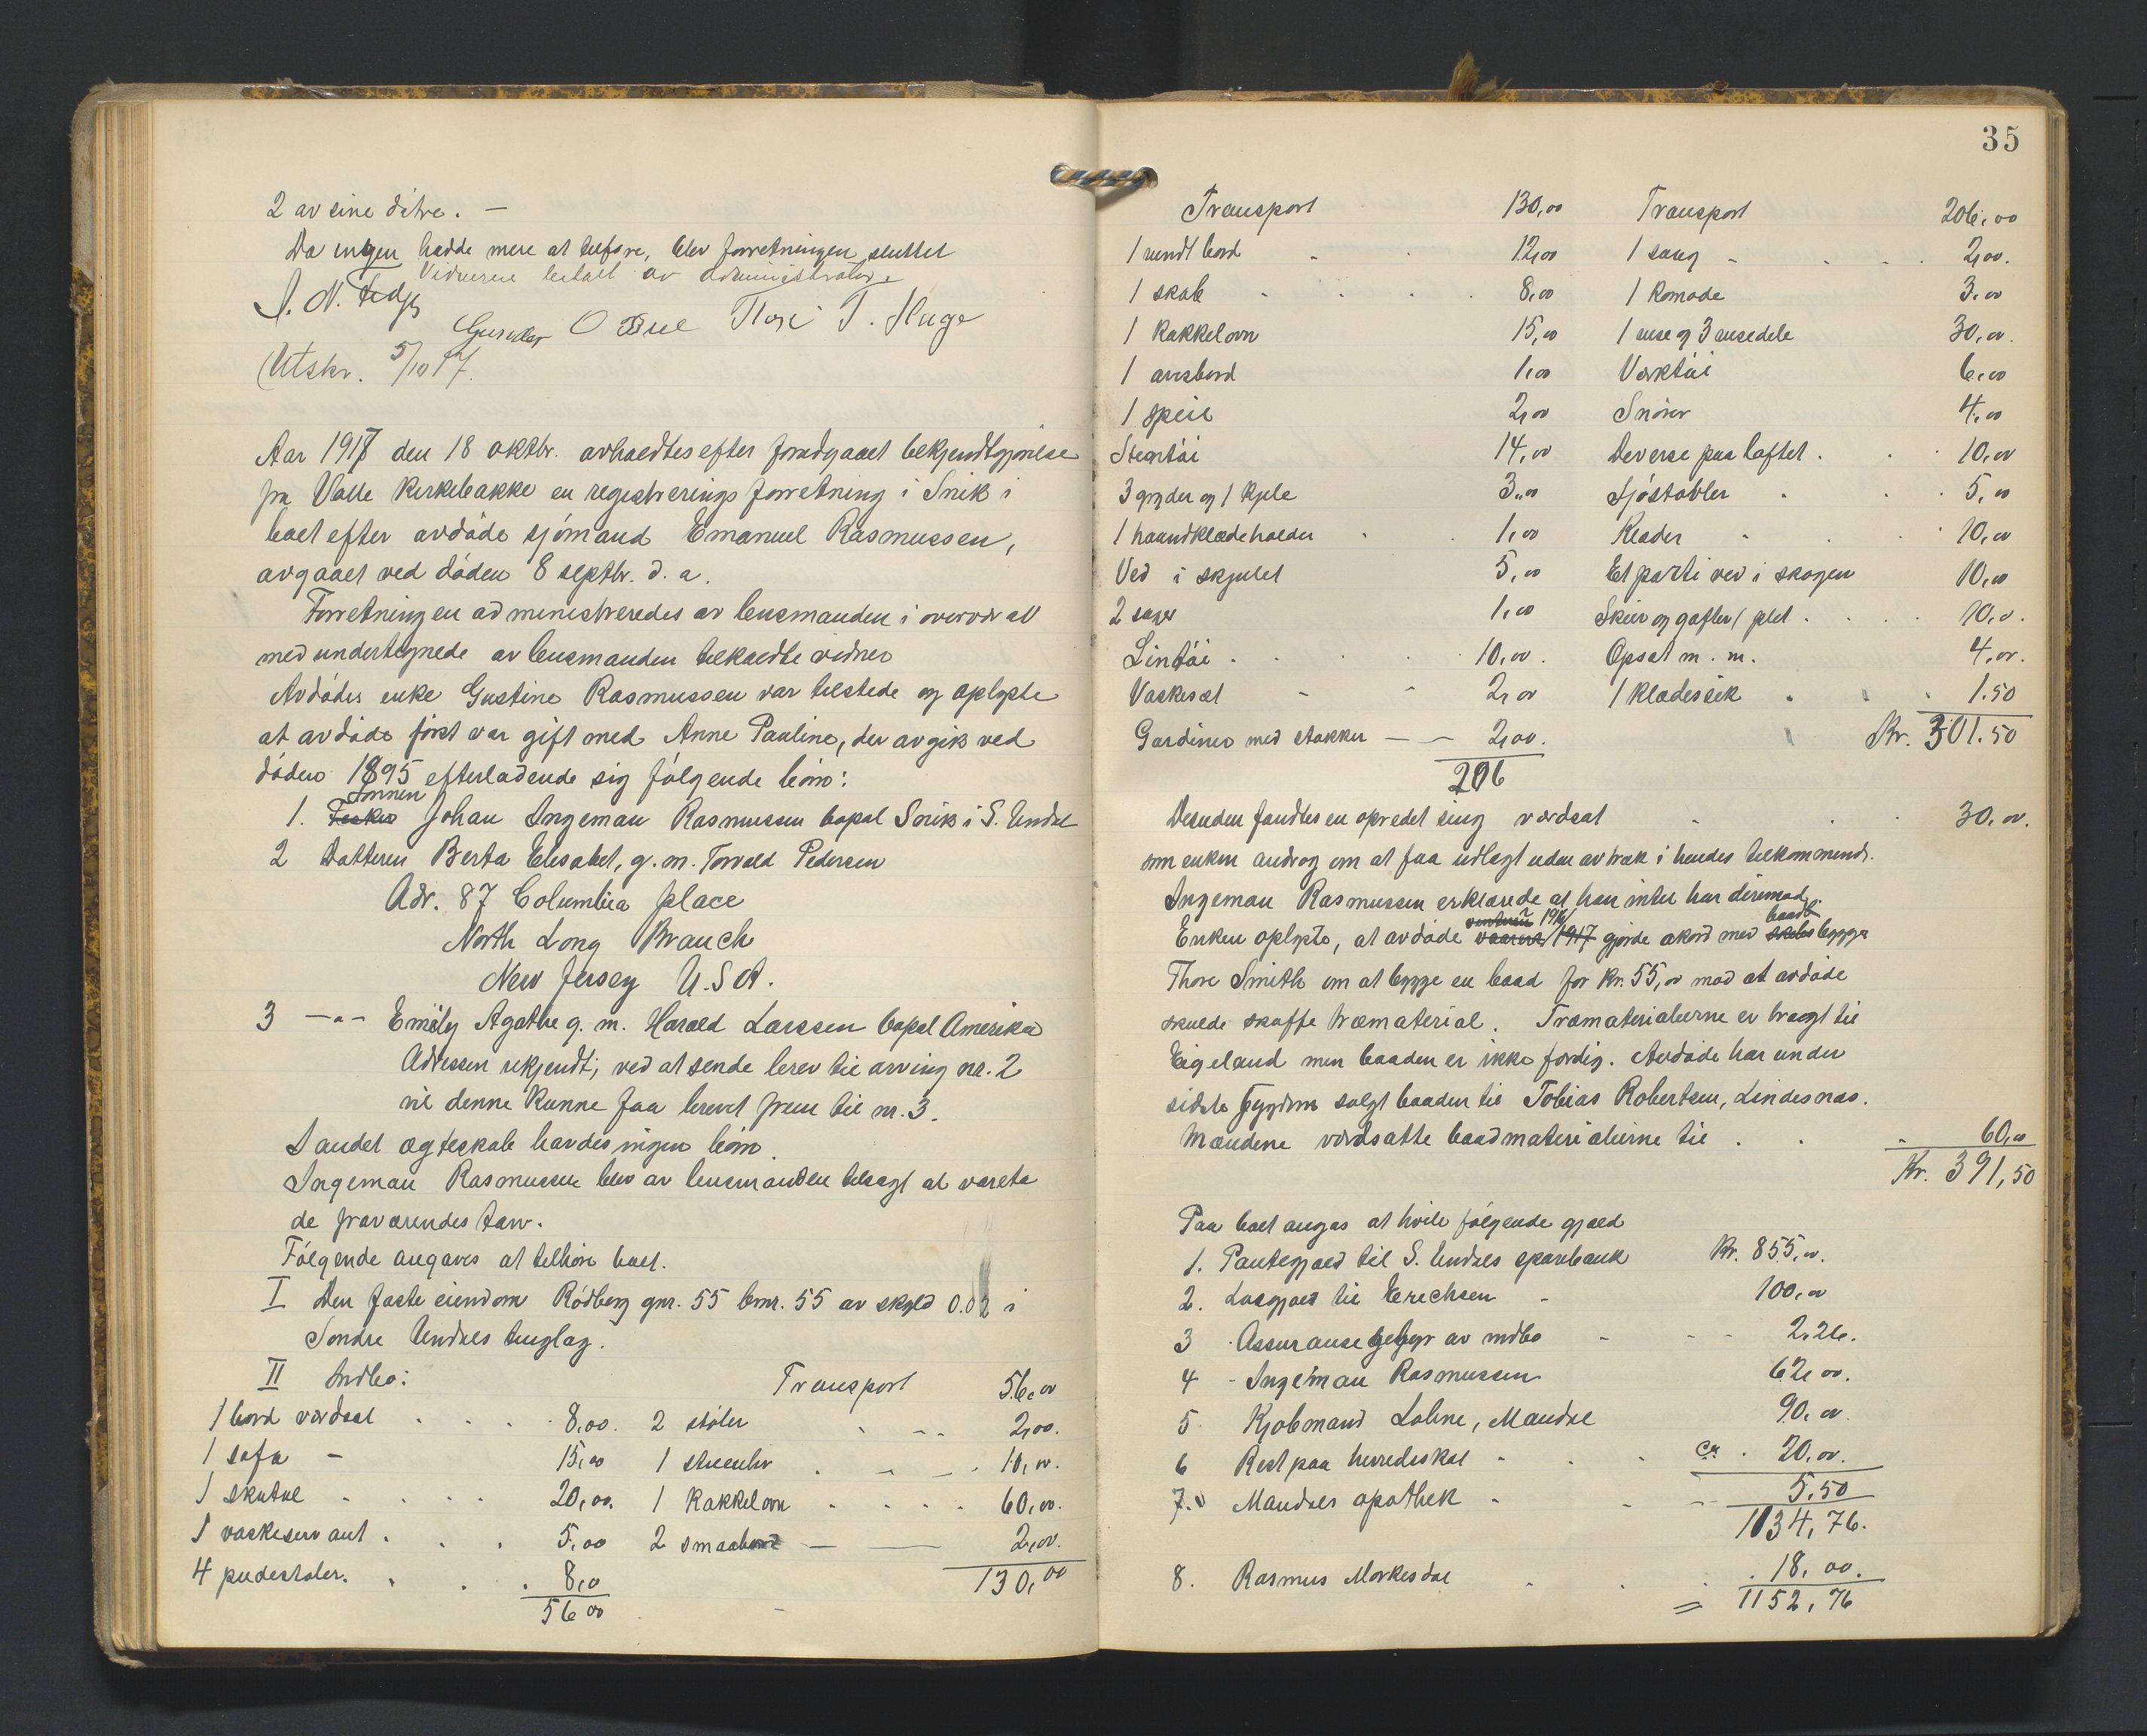 2 av sine døtre. —
Da ingen hadde mere at tilføre, blev forretningen sluttet
Vidnerne betalt av administrator.
Utskr. 5/10 17.
Aar 1917 den 18 oktbr. avholdtes efter forutgaaet bekjendtgjørelse
fra Valle kirkebakke en registreringsforretning i Snik i
boet efter avdøde sjømand Emanuel Rasmussen,
avgaaet ved døden 8 septbr. d. a.
Forretningen administreredes av lensmanden i overvær av
med undertegnede av lensmanden tilkaldte vidner
Avdødes enke Gustine Rasmussen var tilstede og oplyste
at avdøde først var gift med Anne Pauline, der avgik ved
døden 1895 efterladende sig følgende børn:
1. Sønnen Johan Ingeman Rasmussen bopæl Snik i S. Undal
2 Datteren Berta Elisabet, g. m. Torvald Pedersen
Adr. 87 Columbia place
North Long Branch
New Jersey U.S.A.
3 —"— Emily Agathe g. m. Harald Larssen bopæl Amerika
Adressen ukjendt; ved at sende brev til arving nr. 2
vil denne kunne faa brevet frem til nr. 3.
I andet ægteskab havdes ingen børn.
Ingeman Rasmussen blev av lensmanden tilsagt at vareta
de fraværendes tarv.
Følgende angaves at tilhøre boet.
I Den faste eiendom Rødberg gnr. 55 bnr. 55 av skyld 0.02 i
Søndre Undals tinglag.
II Indbo: Transport 56,00
1 bord værdsat 8,00. 2 stoler 2,00.
1 sofa — 15,00 1 10,00.
1 skatol 20,00. 1 kakkelovn 60,00.
1 vaskeservant 5,00 2 smaabord 2,00.
4 pudestoler 8,00 130,00
56 00
35
Transport 130,00 Transport 206,00
1 rundt bord 12,00 1 sag 2,00.
1 skab 8,00 1 komode 3,00
1 kakkelovn 15,00 1 ruse og 3 rusedele 30,00.
1 1,00 Værktøi 6,00
1 speil 2,00 Snører 4,00
Stentøi 14,00 Deverse paa loftet 10,00
3 gryder og 1 kjele 3,00 Sjøstøvler 5,00
1 haandklædeholder 1,00 Klæder 10,00
Ved i skjulet 5,00 Et parti ved i skogen 10,00
2 sager 1,00 Skeer og gafler / plet 10,00.
Lintøi 10,00. Opsat m. m. 4,00.
Vaskesæt 2,00 1 klædessæk 1.50
Gardiner med stokker — 2,00. Kr. 301.50
206
Desuden fandtes en opredet seng værdsat 30,00.
som enken androg om at faa utlagt uden avtræk i hendes tilkommende.
Ingeman Rasmussen erklærede at han intet har derimod.
Enken oplyste, at avdøde vinteren 1916/1917 gjorde akord med baadbygger
Thore Smith om at bygge en baad for kr. 55,00 mod at avdøde
skulde skaffe træmaterial. Træmaterialierne er bragt til
Eigeland men baaden er ikke færdig. Avdøde har under
sidste sygdom solgt baaden til Tobias Robertsen, Lindesnæs.
Mændene værdsatte baadmaterialierne til 60,00
Kr. 391,50
Paa boet angas at hvile følgende gjæld
1. Pantegjæld til S. Undals sparebank Kr. 855,00.
2. Løsgjæld til Erichsen 100,00
3 Assuranse av indbo 2.26.
4 Ingeman Rasmussen 62,00.
5 Kjøbmand Løhne, Mandal 90,00.
6 Rest paa herredsskat ca. 20,00.
7. Mandals apothek 5.50
1134,76.
8. Rasmus Møkesdal 18,00.
= 1152,76